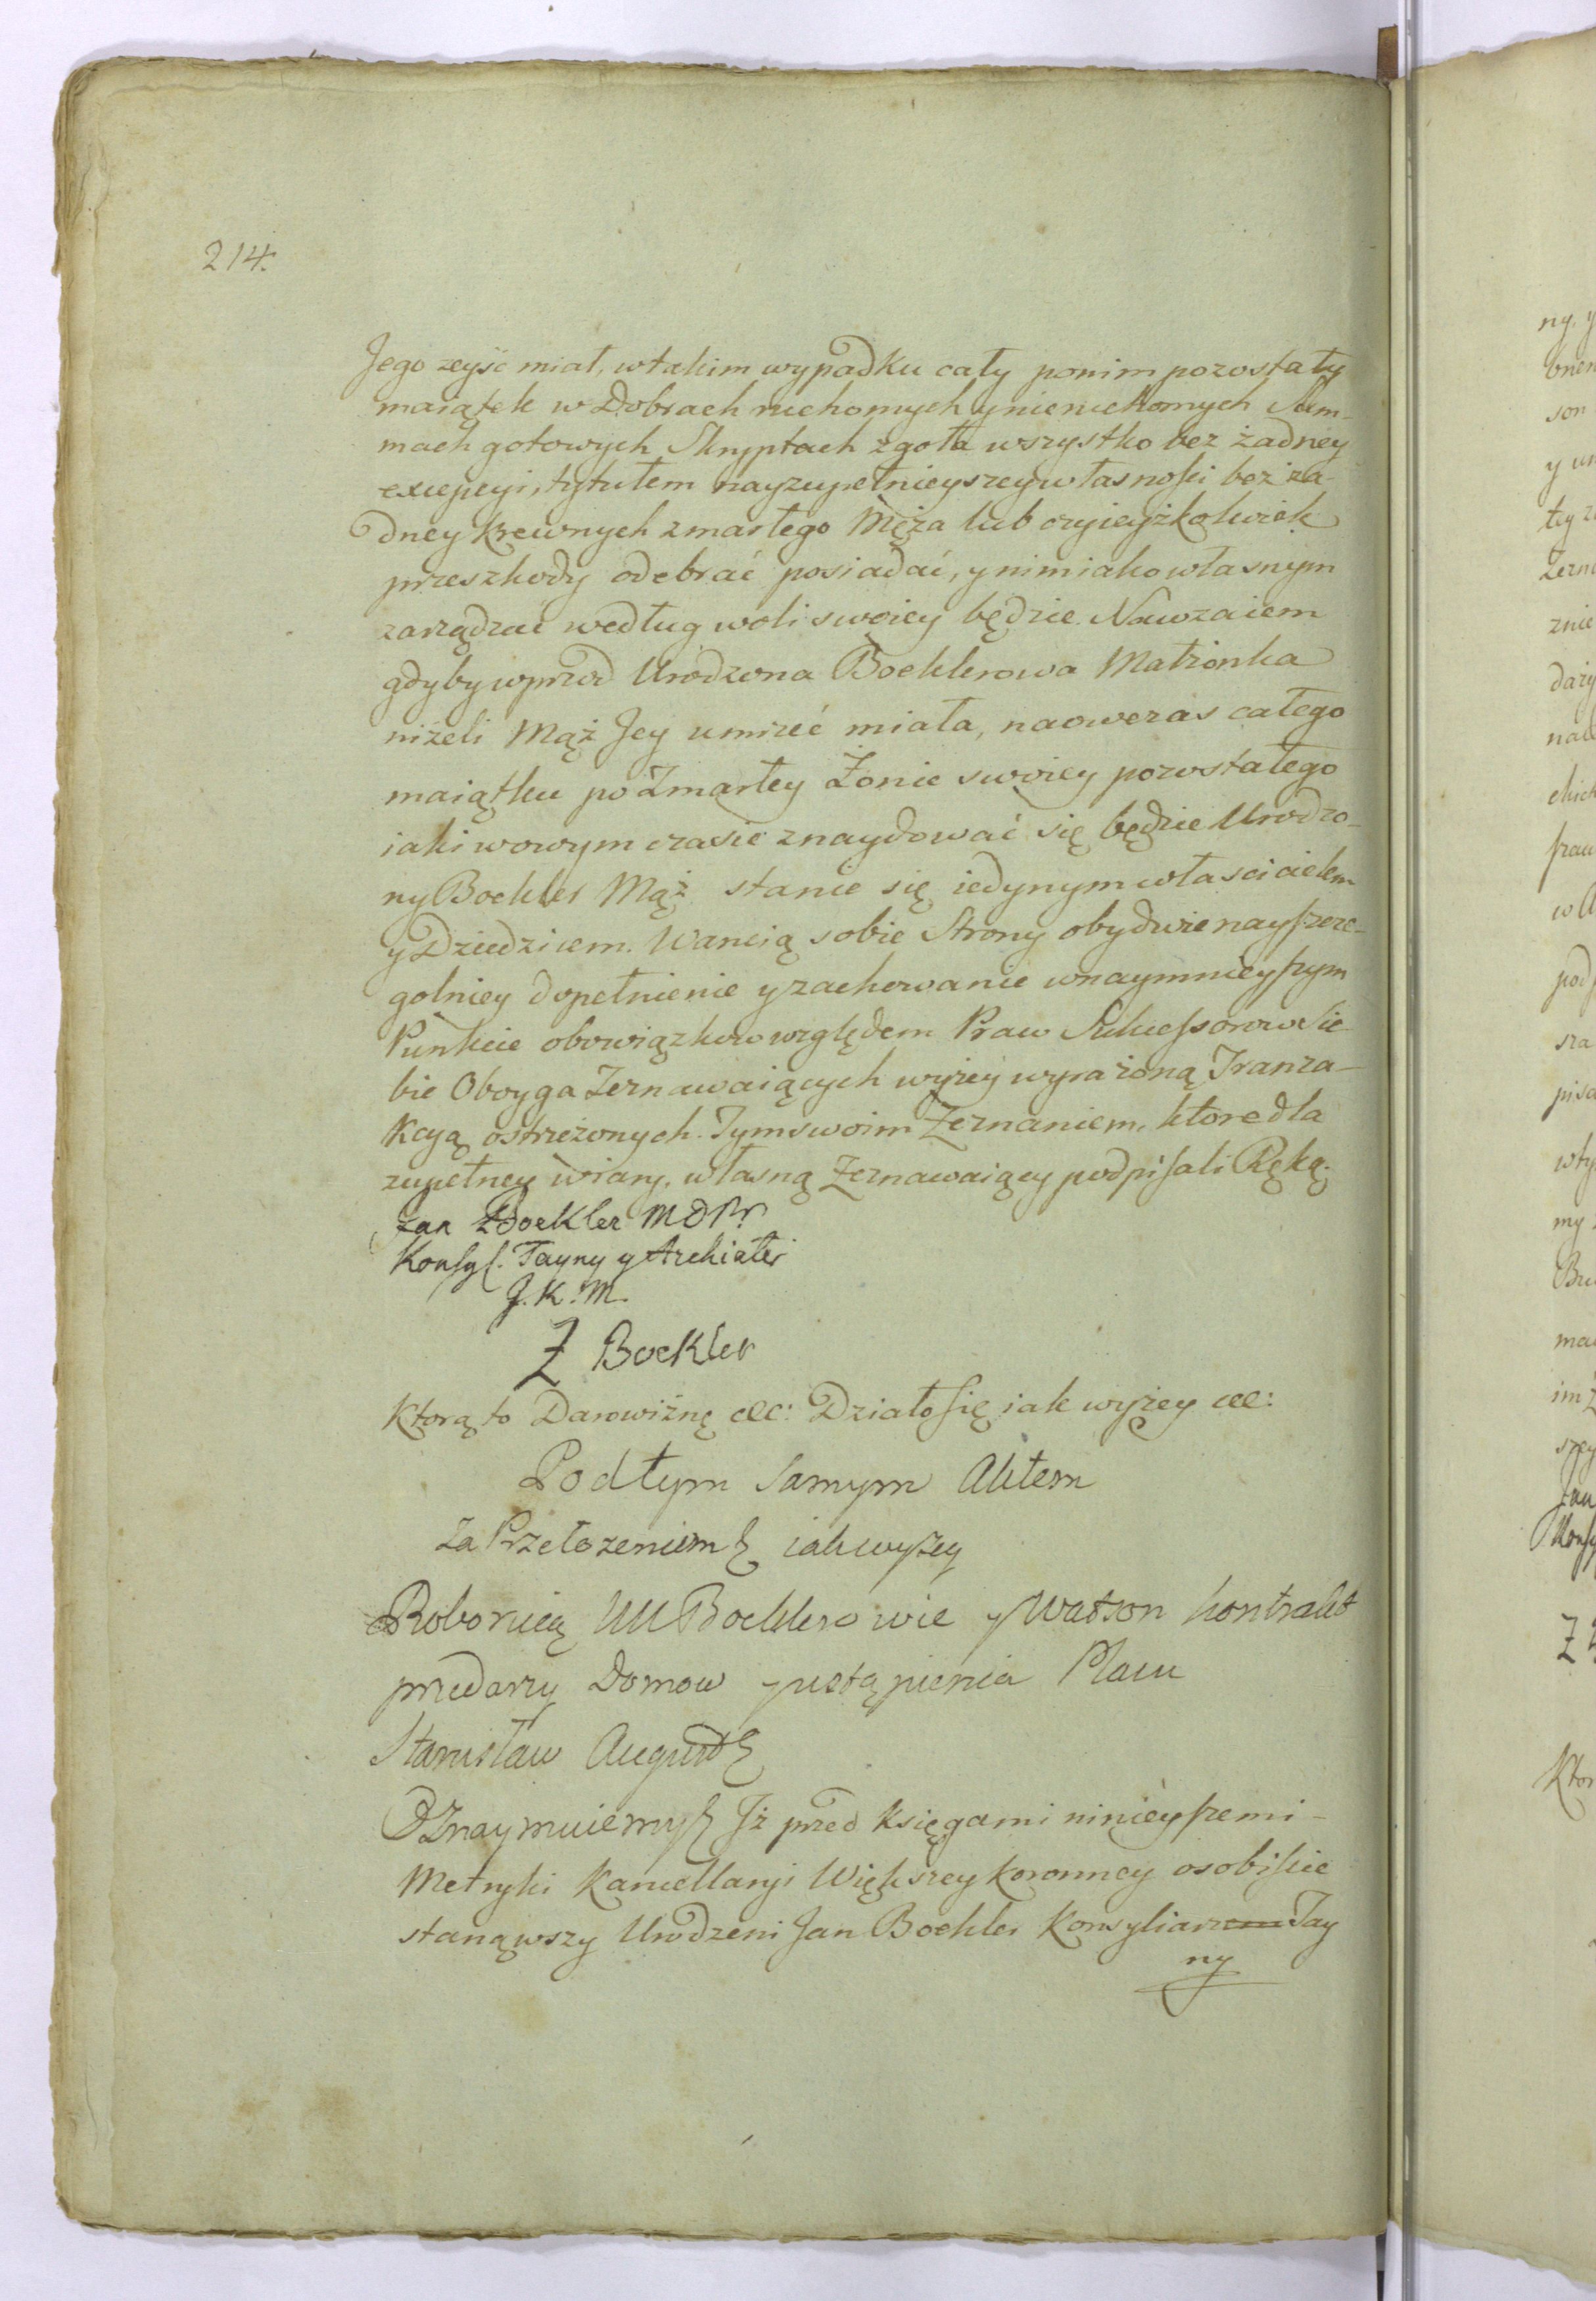 214.
Jego zeyść miał, w takim wypadku cały po nim pozostały
maiątek w Dobrach ruchomych y nieruchomych Sum-
mach gotowych Skryptach zgoła wszystko bez żadney
excepcyi, tytułem nayzupełnieyszey własnosci bez ża-
dney Krewnych zmarłego Męża lub czyieyżkolwiek
przeszkody odebrać posiadać, y nim iako własnym
zarządzać według woli swoiey będzie. Nawzaiem
gdyby wprzod Urodzona Boeklerowa Małżonka
niżeli Mąż Jey umrzeć miała, naowczas całego
maiątku po Zmarłey Żonie swoiey pozostałego
iaki wowym czasie znaydować się będzie Urodzo-
ny Boekler Mąż stanie się iedynym własci cielem
y Dziedzicem. Waruią sobie Strony obydwie nayszcze-
golniey dopełnienie y zachowanie wnaymnieyszym
Punkcie obowiązkow względem Praw Sukcessorow Sie
bie Oboyga Zeznawaiących wyżey wyrażoną Tranza-
kcyą ostrzeżonych. Tym swoim Zeznaniem, ktore dla
zupełney wiary, własną Zeznawaiący podpisali Ręką.
Jan Boekler MDPr
Konsyl. Tayny y Archiater
J. K. M.
Z Boekler
Ktorą to Darowiznę etc: Działo się iak wyżey etc:
Pod tym samym Aktem
Za Przełozeniem iak wyszey
Roboruią UU Boeklerowie y Watson kontrakt
przedarzy Domow y ustąpienia Placu
Stanisław August
Oznaymuiemy Jż przed Księgami ninieyszemi
Metryki Kancellaryi Większey koronney osobiście
stanąwszy Urodzeni Jan Boekler Konsyliarzem Tay
ny